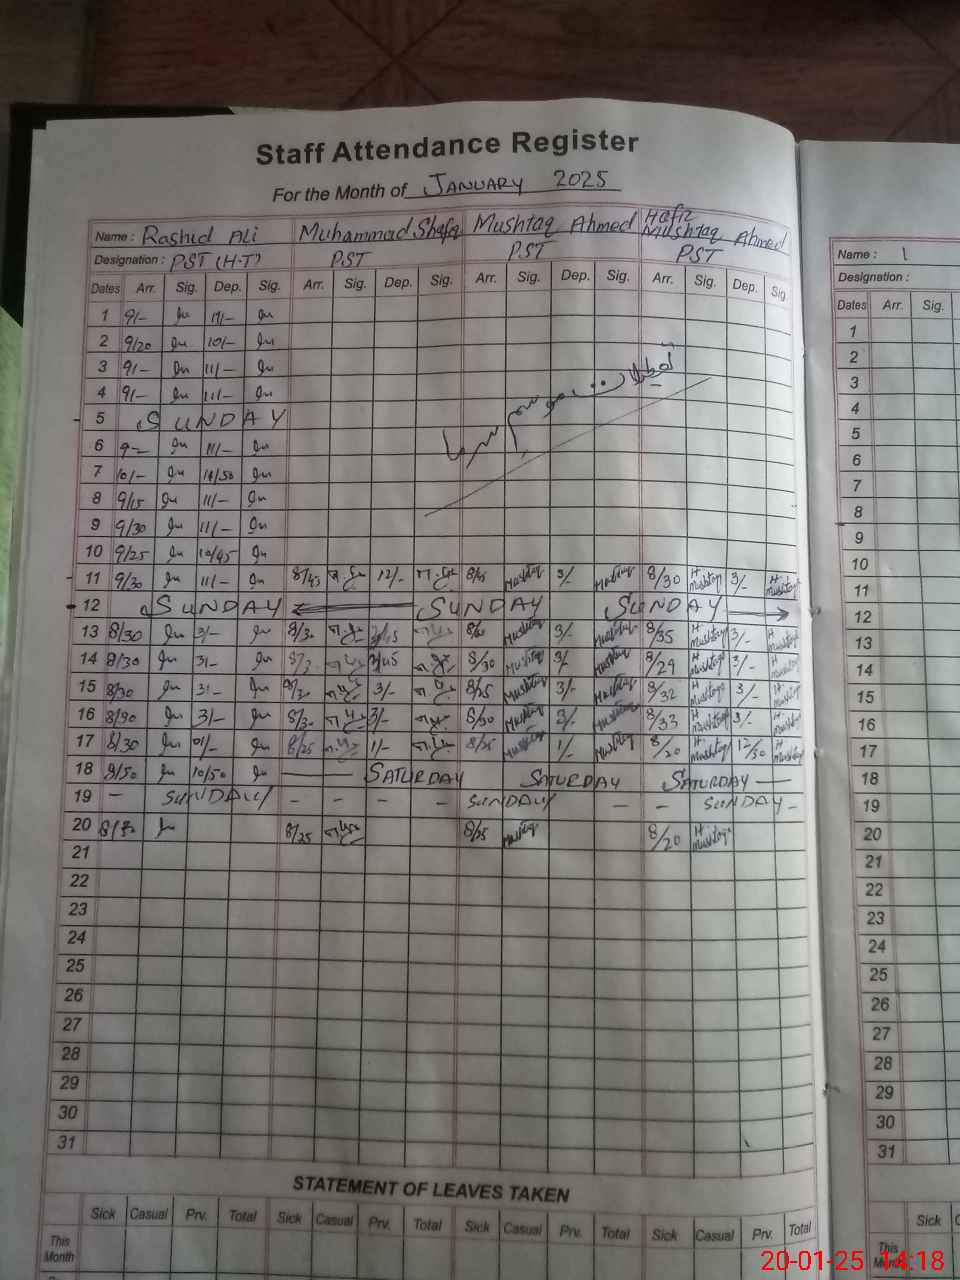 Staff Attendance Register
For the Month of JANUARY 2025
Name : Rashid Ali Muhammad Shafq Mushtaq Ahmed Hafiz Mushtaq Ahmed
Designation : PST (H-T) PST PST PST
Dates Arr. Sig. Dep. Sig. Arr. Sig. Dep. Sig. Arr. Sig. Dep. Sig. Arr. Sig. Dep. Sig.
1 9/- 11/-
2 9/20 10/-
3 9/- 11/-
4 9/- 11/-
تعطیلات موسم سرما
5 SUNDAY
6 9- 11/-
7 10/- 10/50
8 9/15 11/-
9 9/30 11/-
10 9/25 10/45
11 9/30 11/- 8/45 12/- Mushtaq 3/- Mushtaq 8/30 H Mushtaq 3/- H Mushtaq
12 SUNDAY SUNDAY SUNDAY
13 8/30 3/- 8/30 Mushtaq 3/- Mushtaq 8/35 H Mushtaq 3/- H Mushtaq
14 8/30 3/- 8/30 Mushtaq 3/- Mushtaq 8/29 H Mushtaq 3/- H Mushtaq
15 8/30 3/- 3/- 8/25 Mushtaq 3/- Mushtaq 8/32 H Mushtaq 3/- H Mushtaq
16 8/30 3/- 8/30 3/- 8/30 Mushtaq 3/- Mushtaq 8/33 H Mushtaq 3/- H Mushtaq
17 8/30 01/- 8/25 1/- 8/25 Mushtaq 1/- Mushtaq 8/20 H Mushtaq 12/50 H Mushtaq
18 9/50 10/50 SATURDAY SATURDAY SATURDAY
19 - SUNDAY - - - - SUNDAY - - SUNDAY -
20 8/25 8/25 Mushtaq 8/20 H Mushtaq
21
22
23
24
25
26
27
28
29
30
31
STATEMENT OF LEAVES TAKEN
Sick Casual Prv. Total Sick Casual Prv. Total Sick Casual Prv. Total Sick Casual Prv. Total
This Month
Name :
Designation :
Dates Arr. Sig.
1
2
3
4
5
6
7
8
9
10
11
12
13
14
15
16
17
18
19
20
21
22
23
24
25
26
27
28
29
30
31
Sick
This Month
20-01-25 14:18